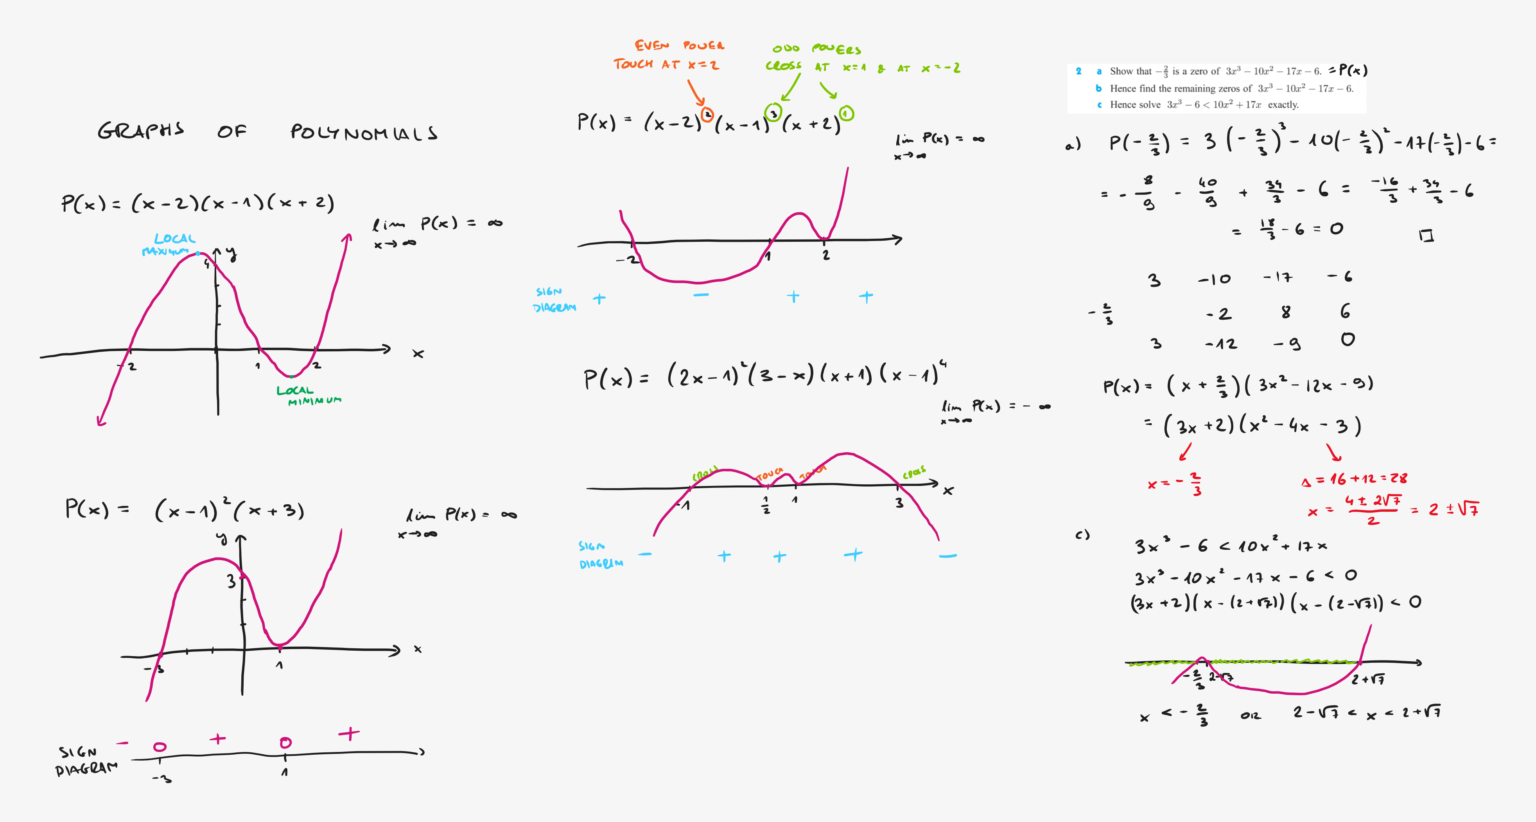 GRAPHS OF POLYNOMIALS
P(x) = (x-2)(x-1)(x+2)
lim P(x) = ∞
x→∞
LOCAL
MAXIMUM
y
4
-2
1
2
x
LOCAL
MINIMUM
P(x) = (x-1)²(x+3)
lim P(x) = ∞
x→∞
y
3
-3
1
x
- 0 + 0 +
SIGN
DIAGRAM
-3
1
EVEN POWER
TOUCH AT x=2
ODD POWERS
CROSS AT x=1 & AT x=-2
P(x) = (x-2)²(x-1)³(x+2)¹
lim P(x) = ∞
x→∞
-2
1
2
SIGN
DIAGRAM
+ - + +
P(x) = (2x-1)²(3-x)(x+1)(x-1)⁴
lim P(x) = -∞
x→∞
CROSS
TOUCH
TOUCH
CROSS
-1
1/2
1
3
x
SIGN
DIAGRAM
- + + + -
2 a Show that -2/3 is a zero of 3x³ - 10x² - 17x - 6. = P(x)
b Hence find the remaining zeros of 3x³ - 10x² - 17x - 6.
c Hence solve 3x³ - 6 < 10x² + 17x exactly.
a) P(-2/3) = 3(-2/3)³ - 10(-2/3)² - 17(-2/3) - 6 =
= -8/9 - 40/9 + 34/3 - 6 = -16/3 + 34/3 - 6
= 18/3 - 6 = 0 □
3 -10 -17 -6
-2/3 -2 8 6
3 -12 -9 0
P(x) = (x + 2/3)(3x² - 12x - 9)
= (3x+2)(x² - 4x - 3)
x = -2/3
Δ = 16 + 12 = 28
x = (4 ± 2√7)/2 = 2 ± √7
c) 3x³ - 6 < 10x² + 17x
3x³ - 10x² - 17x - 6 < 0
(3x+2)(x - (2+√7))(x - (2-√7)) < 0
-2/3
2-√7
2+√7
x < -2/3 OR 2-√7 < x < 2+√7